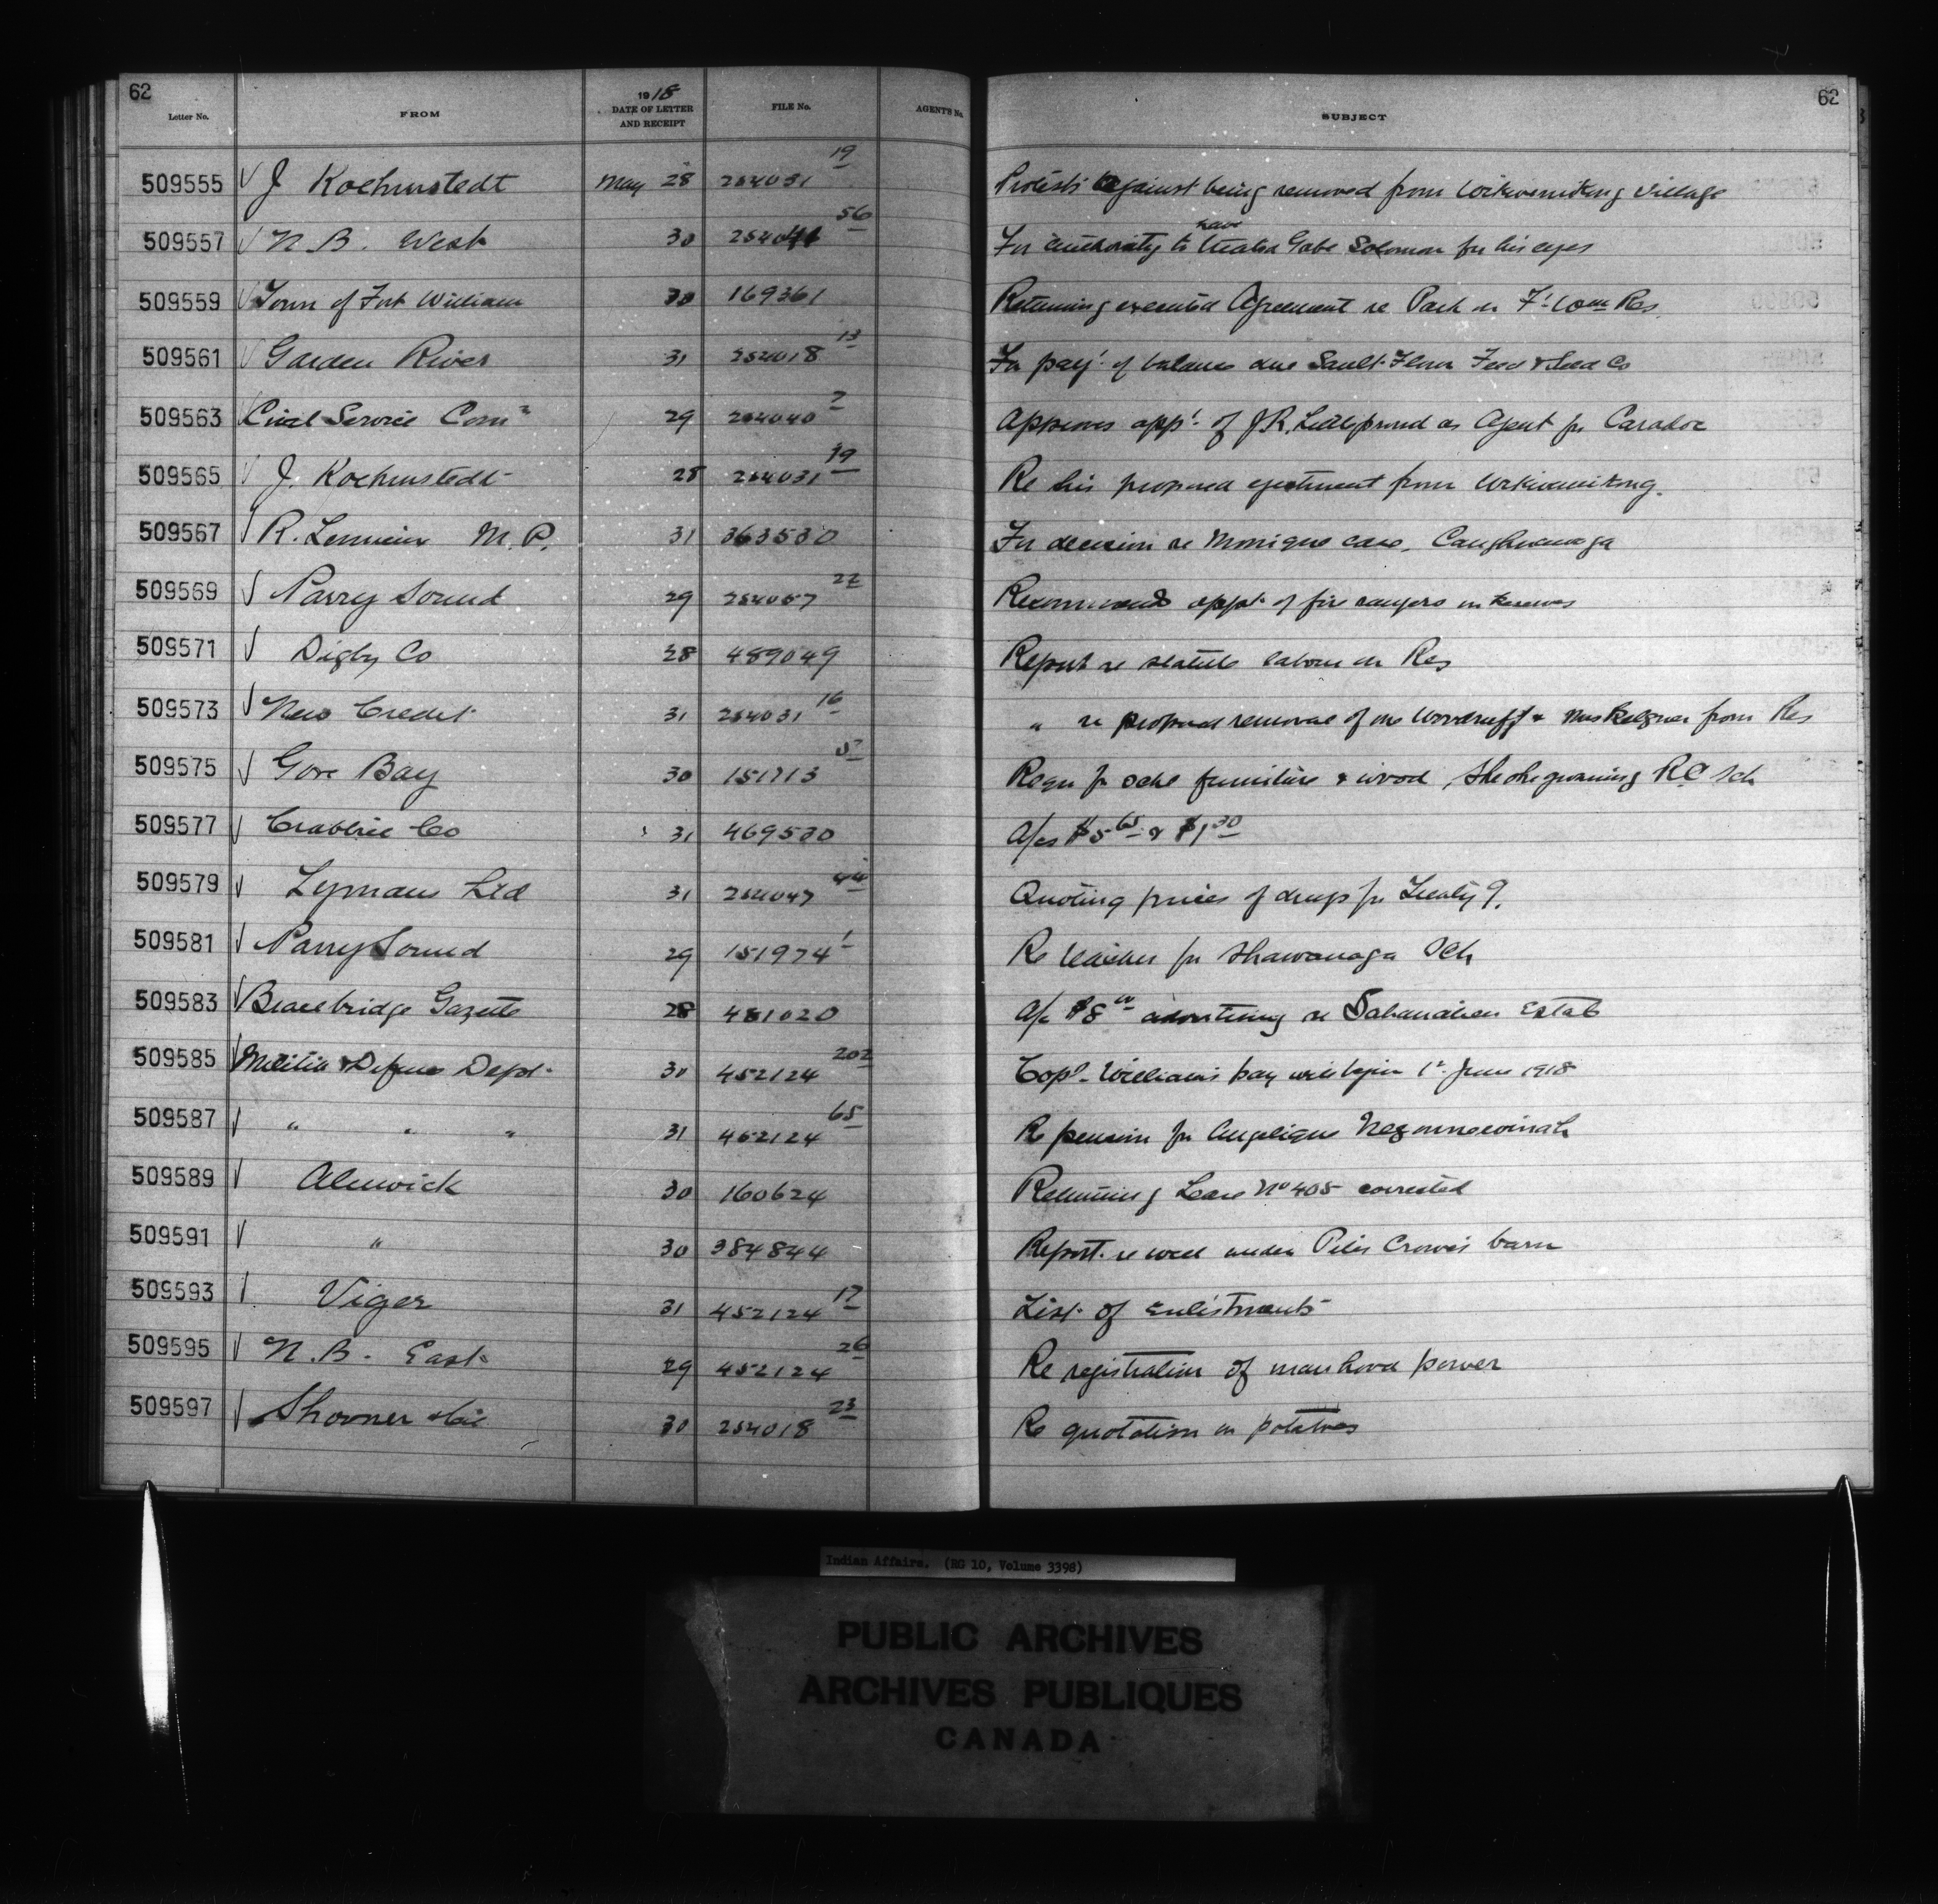 62
Letter No. FROM 1918 DATE OF LETTER AND RECEIPT FILE No. AGENT'S No. SUBJECT 62
509555 J Koehmstedt May 28 254031 19 Protests against being removed from Wikwemikong Village
509557 N.B. West 30 254041 56 For authority to have treated Gabe Solomon for his eyes
509559 Town of Fort William 30 169361 Returning executed Agreement re Park on Ft. Wm Res.
509561 Garden River 31 254018 13 For payt. of balance due Sault Flour Feed & Seed Co
509563 Civil Service Comn 29 254040 7 Approves appt. of J.R. Littleproud as Agent for Caradoc
509565 J. Koehmstedt 28 254031 19 Re his proposed ejectment from Wikwemikong.
509567 R. Lemieux M.P. 31 363530 For decision re Monique case, Caughnawaga
509569 Parry Sound 29 254057 22 Recommends appt. of fire rangers on Reserves
509571 Digby Co 28 489049 Report re statute labour on Res
509573 New Credit 31 254031 16 " re proposed removal of one Woodruff & Mrs from Res
509575 Gore Bay 30 151713 Requ for schl furniture & wood, Sheshegwaning RC Sch
509577 Crabtree Co 31 469530 A/cs $5 65 & $1 30
509579 Lymans Ltd 31 254047 44 Quoting prices of drugs for Treaty 9.
509581 Parry Sound 29 151974 1 Re teacher for Shawanaga Sch
509583 Bracebridge Gazette 28 481020 A/c $8 00 advertising re Estate
509585 Militia & Defence Dept. 30 452124 202 Copl. Williams pay will begin 1st June 1918
509587 " " " 31 452124 65 Re pension for Angelique
509589 Alnwick 30 160624 Returning Lease No 405 corrected
509591 " 30 384844 Report re well under Peter Crowe's barn
509593 Viger 31 452124 17 List of enlistments
509595 N.B. East 29 452124 26 Re registration of manhood power
509597 30 254018 23 Re quotation on potatoes
Indian Affairs. (RG 10, Volume 3398)
PUBLIC ARCHIVES
ARCHIVES PUBLIQUES
CANADA